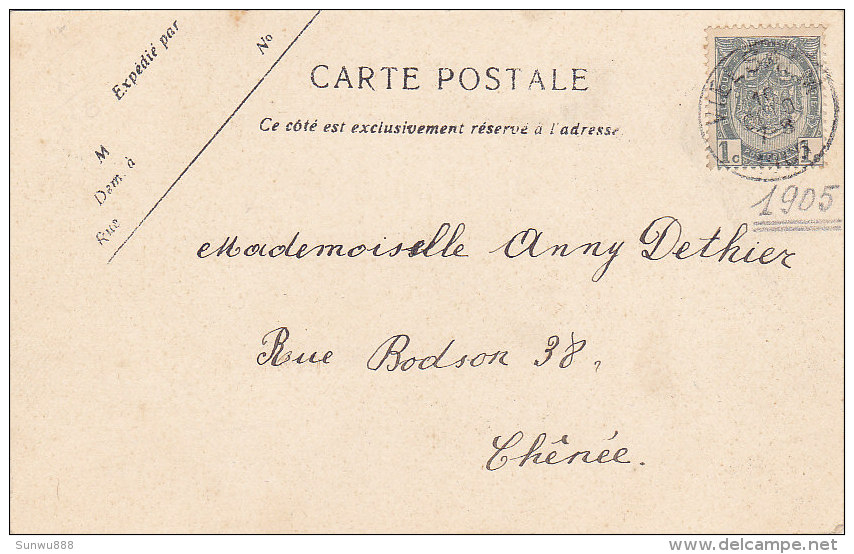 Expédié par
No
M
Dem. à
Rue
CARTE POSTALE
Ce côté est exclusivement réservé à l'adresse.
1c 1
1905
Mademoiselle Anny Dethier
Rue Bodson 38,
Chênée.
Sunwu888
www.delcampe.net